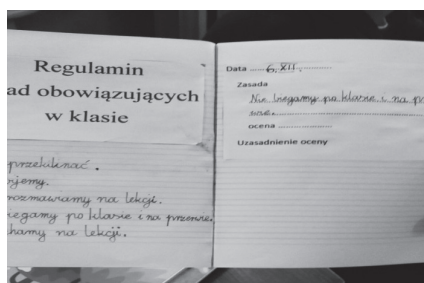 Regulamin
ad obowiązujących
w klasie
przeklinać.
ijemy.
rozmawiamy na lekcji.
iegamy po klasie i na przerwie.
hamy na lekcji.
Data ..... 6.XII. ........
Zasada
Nie biegamy po klasie i na pr
wie. ........
ocena ........
Uzasadnienie oceny